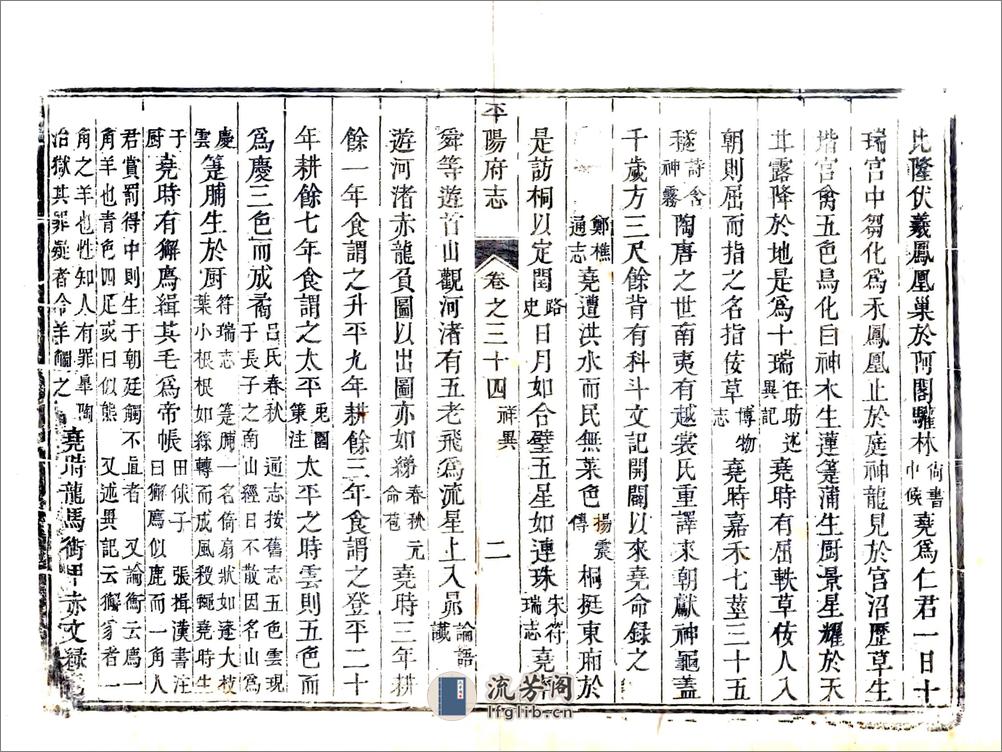 比隆伏羲鳳凰巢於阿閣驩林尚書中候堯爲仁君一日十
瑞宮中芻化爲禾鳳凰止於庭神龍見於宮沼歷草生
堦宮禽五色鳥化白神木生蓮箑蒲生厨景星耀於天
甘露降於地是爲十瑞任昉述異記堯時有屈軼草佞人入
朝則屈而指之名指佞草博物志堯時嘉禾七莖三十五
穟詩含神霧陶唐之世南夷有越裳氏重譯來朝獻神龜蓋
千歲方三尺餘背有科斗文記開闢以來堯命錄之
鄭樵通志堯遭洪水而民無菜色楊震傳桐挺東廂於
是訪桐以定閏路史日月如合璧五星如連珠宋符瑞志堯
平陽府志 卷之三十四 祥異 二
舜等遊首山觀河渚有五老飛爲流星上入昴論語讖
遊河渚赤龍負圖以出圖亦如綈春秋元命苞堯時三年耕
餘一年食謂之升平九年耕餘三年食謂之登平二十
年耕餘七年食謂之太平兎園策注太平之時雲則五色而
爲慶三色而成矞呂氏春秋 通志按舊志五色雲現于長子之南山經日不散因名山爲
慶雲箑脯生於厨符瑞志 箑脯一名倚扇狀如蓬大枝葉小根根如絲轉而成風殺蠅堯時生
于厨堯時有獬廌緝其毛爲帝帳田俅子 張揖漢書注曰獬廌似鹿而一角人
君賞罰得中則生于朝廷觸不直者 又論衡云廌一角羊也青色四足或曰似熊 又述異記云獬豸者一
角之羊也性知人有罪臯陶治獄其罪疑者令羊觸之堯時龍馬銜甲赤文綠
流芳阁
lfglib.cn